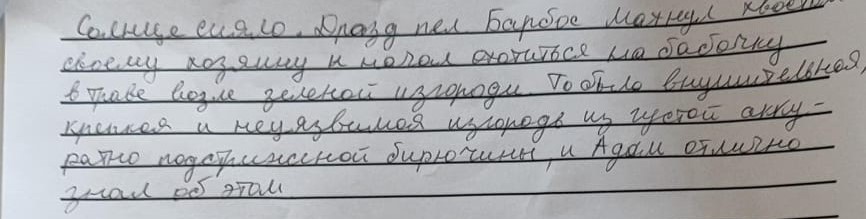 Солнце сияло. Дрозд пел. Барбос махнул хвостом
своему хозяину и начал охотиться на бабочку
в траве возле зеленой изгороди. То была внушительная,
крепкая и неуязвимая изгородь из густой акку-
ратно подстриженной бирючины, и Адам отлично
знал об этом